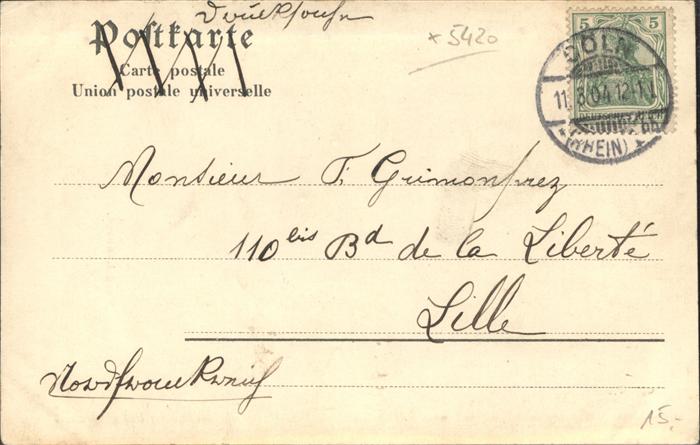 Drucksache
Postkarte
Carte postale
Union postale universelle
x 5420
5 5
DEUTSCHES REICH
CÖLN
11.8.04.12-1N
*(RHEIN)
Monsieur F. Grimonprez
110 bis Bd de la Liberté
Lille
Nordfrankreich
15.-